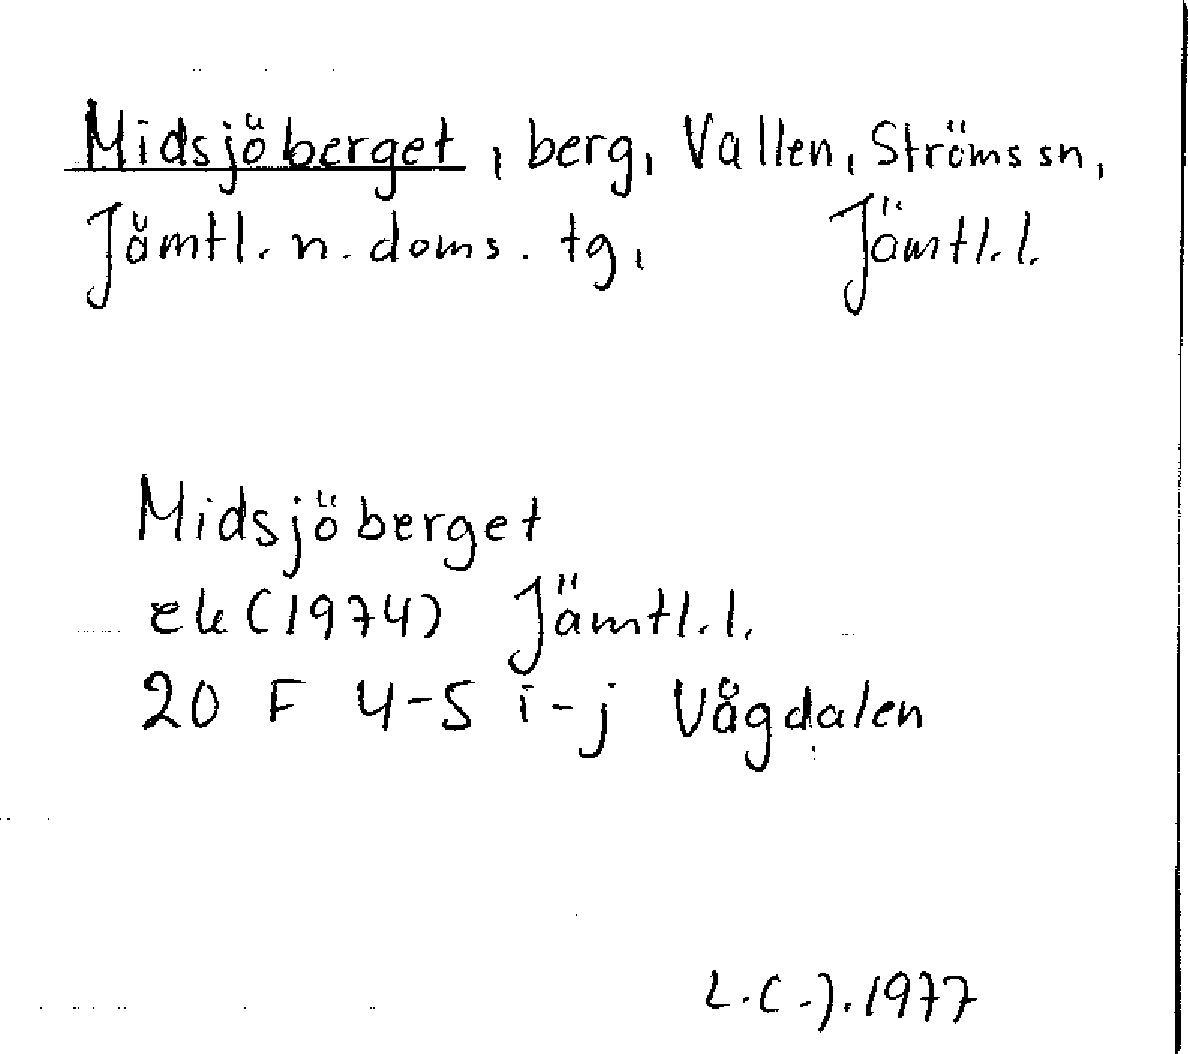 Midsjöberget, berg, Vallen, Ströms sn,
Jämtl. n. doms. tg, Jämtl. l.
Midsjöberget
ek (1974) Jämtl. l.
20 F 4-5 i-j Vågdalen
L.C.J. 1977